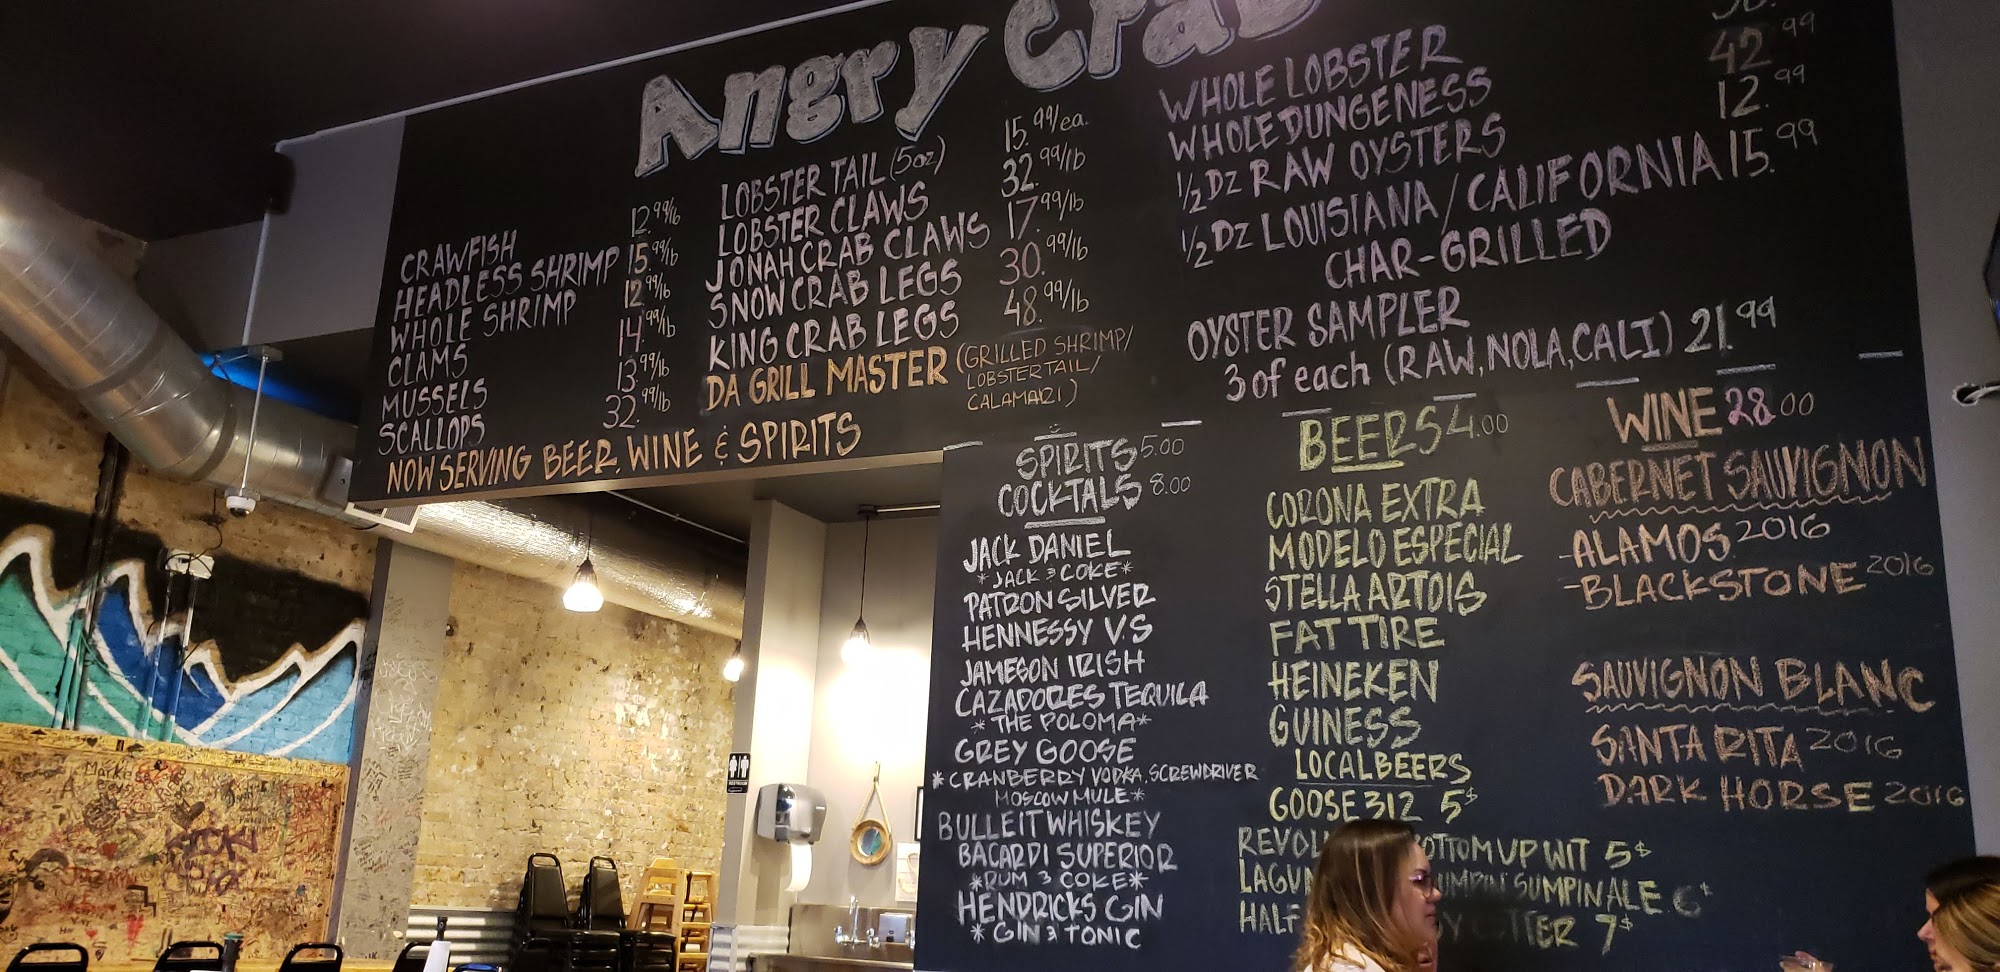 Angry Crab
CRAWFISH 12.99/lb
HEADLESS SHRIMP 15.99/lb
WHOLE SHRIMP 12.99/lb
CLAMS 14.99/lb
MUSSELS 13.99/lb
SCALLOPS 32.99/lb
NOW SERVING BEER, WINE & SPIRITS
LOBSTER TAIL (5oz) 15.99/ea.
LOBSTER CLAWS 32.99/lb
JONAH CRAB CLAWS 17.99/lb
SNOW CRAB LEGS 30.99/lb
KING CRAB LEGS 48.99/lb
DA GRILL MASTER (GRILLED SHRIMP/
LOBSTER TAIL/
CALAMARI)
WHOLE LOBSTER
WHOLE DUNGENESS 42.99
1/2 DZ RAW OYSTERS 12.99
1/2 DZ LOUISIANA/CALIFORNIA 15.99
CHAR-GRILLED
OYSTER SAMPLER
3 of each (RAW, NOLA, CALI) 21.99
SPIRITS 5.00
COCKTALS 8.00
JACK DANIEL
*JACK & COKE*
PATRON SILVER
HENNESSY V.S
JAMESON IRISH
CAZADORES TEQUILA
*THE POLOMA*
GREY GOOSE
*CRANBERRY VODKA, SCREWDRIVER
MOSCOW MULE*
BULLEIT WHISKEY
BACARDI SUPERIOR
*RUM & COKE*
HENDRICKS GIN
*GIN & TONIC
BEERS 4.00
CORONA EXTRA
MODELO ESPECIAL
STELLA ARTOIS
FAT TIRE
HEINEKEN
GUINESS
LOCAL BEERS
GOOSE 312 5$
UP WIT 5$
SUMPIN ALE 6$
HALF 7$
WINE 28.00
CABERNET SAUVIGNON
-ALAMOS 2016
-BLACKSTONE 2016
SAUVIGNON BLANC
SANTA RITA 2016
DARK HORSE 2016